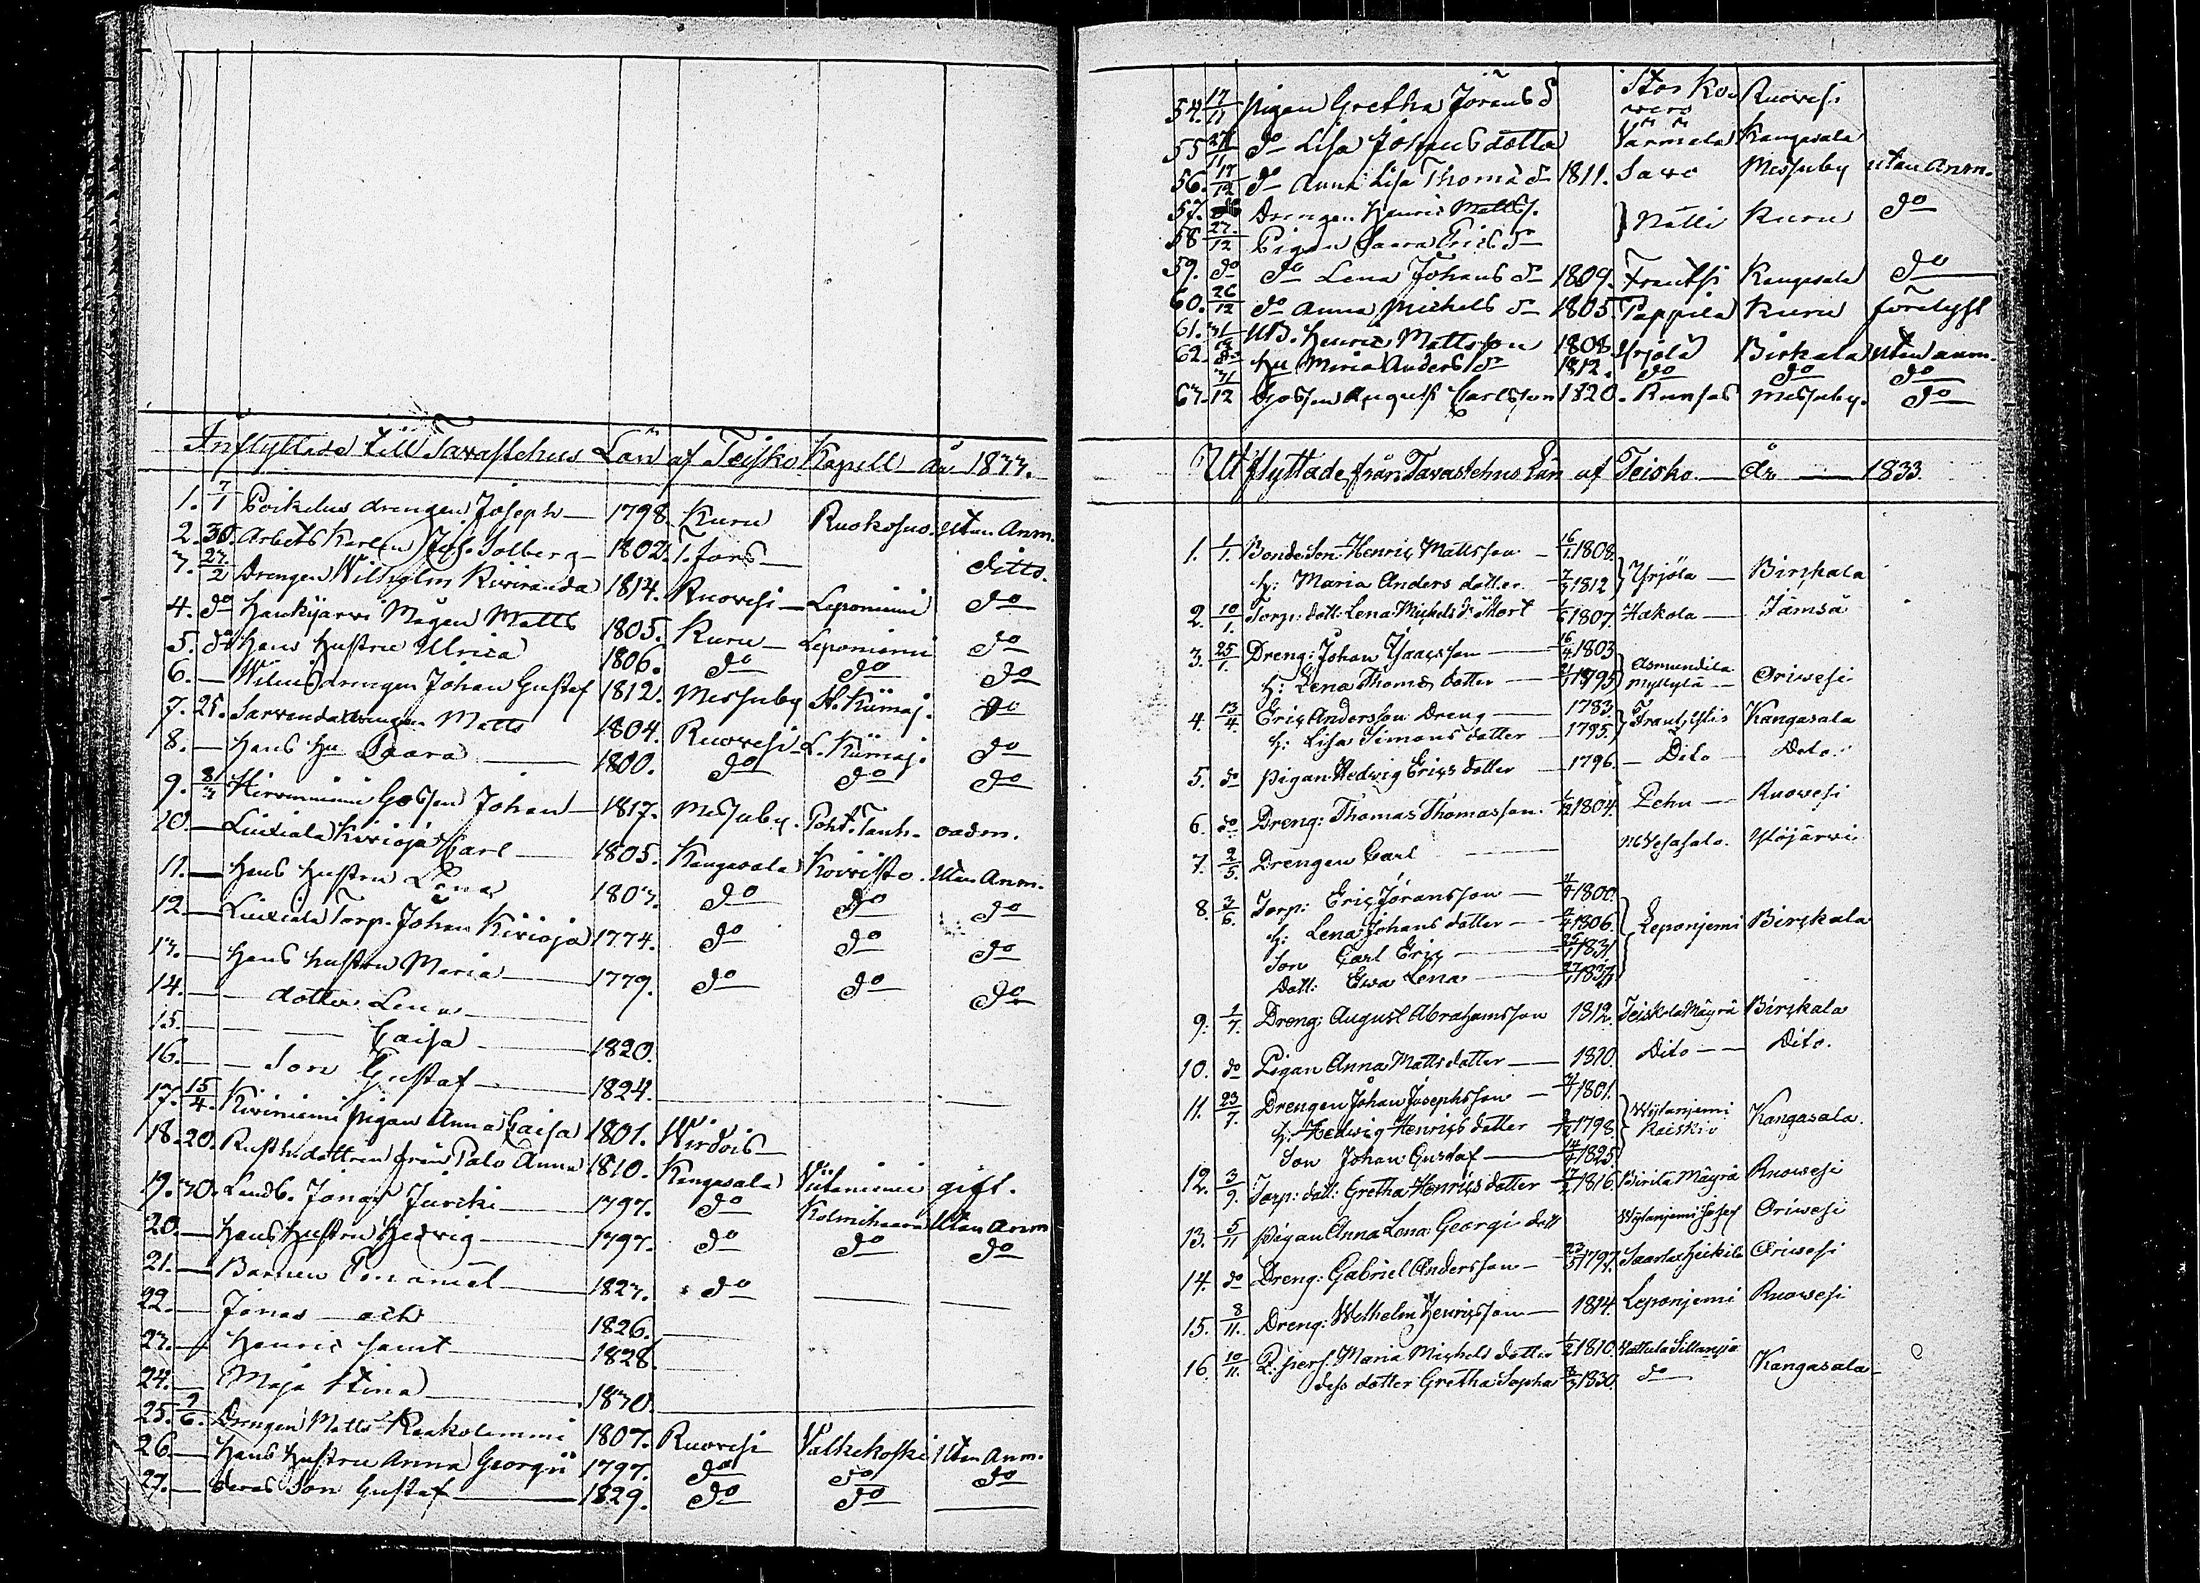 Inflyttade till Tavastehus Län af Teisko Kapell år 1833.
1. 7/1 Poikelus drengen Joseph 1798. Kuru Ruokosuo. utan Anm.
2. 30. Arbets Karlen Joh. Solberg 1802. T. fors ditto.
3. 27/2 Drengen Wilhelm Kiviranda 1814. Ruovesi Leponiemi do
4. do Haukijärvi Mågen Matts 1805. Kuru Leponiemi do
5. do Hans Hustru Ulrica 1806. do do do
6. Drengen Johan Gustaf 1812. Messuby N. Kiimaj. do
7. 25. Sarvenda drengen Matts 1804. Ruovesi L. Kiimaj. do
8. Hans Hu Saara 1800. do do do
9. 8/3 Hirviniemi Gossen Johan 1817. Messuby. Poht. Tanh. oadm.
10. Luixiala Kivioja Carl 1805. Kangasala Koivisto. utan Anm.
11. Hans Hustru Lena 1803. do do do
12. Luixiala Torp. Johan Kivioja 1774. do do do
13. Hans hustru Maria 1779. do do do
14. dotter Lena
15. Caisa 1820.
16. Son Gustaf 1824.
17. 15/4. Kiviniemi pigan Anna Caisa 1801. Wirdois
18. 20. Rusth. dottren från Palo Anna 1810. Kangasala Viitaniemi gift.
19. 30. Landb. Jonas Jureki 1797. do Kolmihaara utan Anm
20. Hans Hustru Hedvig 1797. do do do
21. Barnen Emanuel 1823. do
22. Jonas och 1826.
23. Henric samt 1828.
24. Maja Stina 1830.
25. 2/6. Drengen Matts Kaakolammi 1807. Ruovesi Valkekoski utan Anm.
26. Hans Hustru Anna Georgii 1797. do do do
27. deras Son Gustaf 1829. do do
54. 17/11 pigan Gretha Jörans d Stor Ko wero Ruovesi
55 27/11 do Lisa Johans dotter Värmälä Kangasala
56. 17/12 do Anna Lisa Thomæ dr 1811. Savo Messuby utan Anm.
57. do Drengen Henric Matts. } Nätti Kuru do
58 27./12 Pigan Saara Erics dr
59. do do Lena Johans dr 1809. Frantsi Kangasala do
60. 26/12 do Anna Michels dr 1805. Pappila Kuru förelyst
61. 31/12 UB. Henric Mattsson 1808. Yrjölä Birkala utan anm.
62. do Hu Maria Anders dr 1812. do do do
63. 31/12 Gossen August Carlsson 1820. Runsas Messuby. do
Utflyttade från Tavastehus Län af Teisko år 1833.
1. 1/1. Bonde Son: Henric Mattsson 16/1 1808.
h: Maria Anders dotter 7/3 1812 } Yrjölä Birkala
2. 10/1. Torp: dott: Lena Michels dr Stort 1807. Hakola Jämsä
3. 25/1. Dreng: Johan Isacsson 16/4 1803
h: Lena Thomæ dotter 1795 } Asmundila Myllylä Orivesi
4. 13/4. Eric Andersson Dreng 1783.
h: Lisa Simons dotter 1795. } Frantsilis Kangasala
5. do pigan Hedvig Erics dotter 1796. Dito Dito.
6. do Dreng: Thomas Thomasson. 1804. Pehu Ruowesi
7. 2/5. Drengen Carl Ylöjärwi
8. 3/6. Torp: Eric Jöransson 1800.
h: Lena Johans dotter 1806. } Leponjemi Birkala
Son Carl Eric 1831.
Dott: Ewa Lena 1833.
9. 1/7. Dreng: August Abrahamsson 1812. Teiskola Mäyrä Birkala
10. do Pigan Anna Matts dotter 1810. Dito Dito.
11. 23/7. Drengen Johan Josephsson 1801.
h: Hedwig Henrics dotter 1798. } Wijtanjemi Raiskio Kangasala.
Son Johan Gustaf 1825.
12. 3/9. Torp: dott: Gretha Henrics dotter 1816. Birila Mäyrä Ruowesi
13. 5/11 pigan Anna Lena Georgi dott Wijtanjemi Orivesi
14. do Dreng: Gabriel Andersson 1797. Saarlax Heikilä Orivesi
15. 8/11. Dreng: Wilhelm Henricsson 1814. Leponjemi Ruowesi
16. 10/11. Q: pers: Maria Michels dotter 1810. Wattula Sillanpää
dess dotter Gretha Sopha 1830. do Kangasala